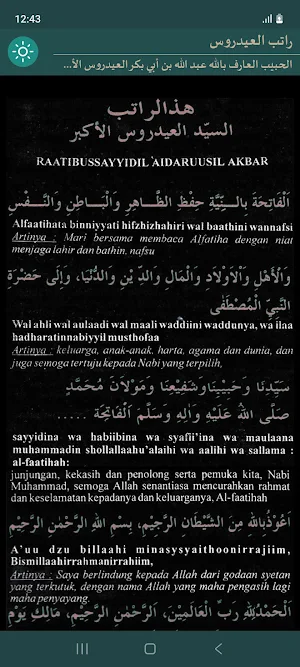 12:43
راتب العيدروس
الحبيب العارف بالله عبد الله بن أبي بكر العيدروس الأ...
هذالراتب
السيّد العيدروس الأكبر
RAATIBUSSAYYIDIL 'AIDARUUSIL AKBAR
اَلْفَاتِحَةَ بِالنِّيَّةِ حِفْظِ الظَّاهِرِ وَالْبَاطِنِ وَالنَّفْسِ
Alfaatihata binniyyati hifzhizhahiri wal baathini wannafsi
Artinya : Mari bersama membaca Alfatiha dengan niat
menjaga lahir dan bathin, nafsu
وَالْأَهْلِ وَالْاَوْلَادِ وَالْمَالِ وَالدِّيْنِ وَالدُّنْيَا، وَاِلَى حَضْرَةِ
النَّبِيِّ الْمُصْطَفَى
Wal ahli wal aulaadi wal maali waddiini waddunya, wa ilaa
hadharatinnabiyyil musthofaa
Artinya : keluarga, anak-anak, harta, agama dan dunia, dan
juga semoga tertuju kepada Nabi yang terpilih,
سَيِّدِنَا وَحَبِيْبِنَا وَشَفِيْعِنَا وَمَوْلَانَ مُحَمَّدٍ
صَلَّى اللهُ عَلَيْهِ وَآلِهِ وَسَلَّمَ اَلْفَاتِحَةْ .....
sayyidina wa habiibina wa syafii'ina wa maulaana
muhammadin shollallaahu'alaihi wa aalihi wa sallama :
al-faatihah:
junjungan, kekasih dan penolong serta pemuka kita, Nabi
Muhammad, semoga Allah senantiasa mencurahkan rahmat
dan keselamatan kepadanya dan keluarganya, Al-faatihah
اَعُوْذُ بِاللهِ مِنَ الشَّيْطَانِ الرَّجِيْمِ، بِسْمِ اللهِ الرَّحْمٰنِ الرَّحِيْمِ
A'uu dzu billaahi minasysyaithoonirrajiim,
Bismillaahirrahmanirrahiim,
Artinya : Saya berlindung kepada Allah dari godaan syetan
yang terkutuk, dengan nama Allah yang maha pengasih lagi
maha penyayang.
اَلْحَمْدُ لِلّٰهِ رَبِّ الْعَالَمِيْنَ، اَلرَّحْمٰنِ الرَّحِيْمِ، مَالِكِ يَوْمِ